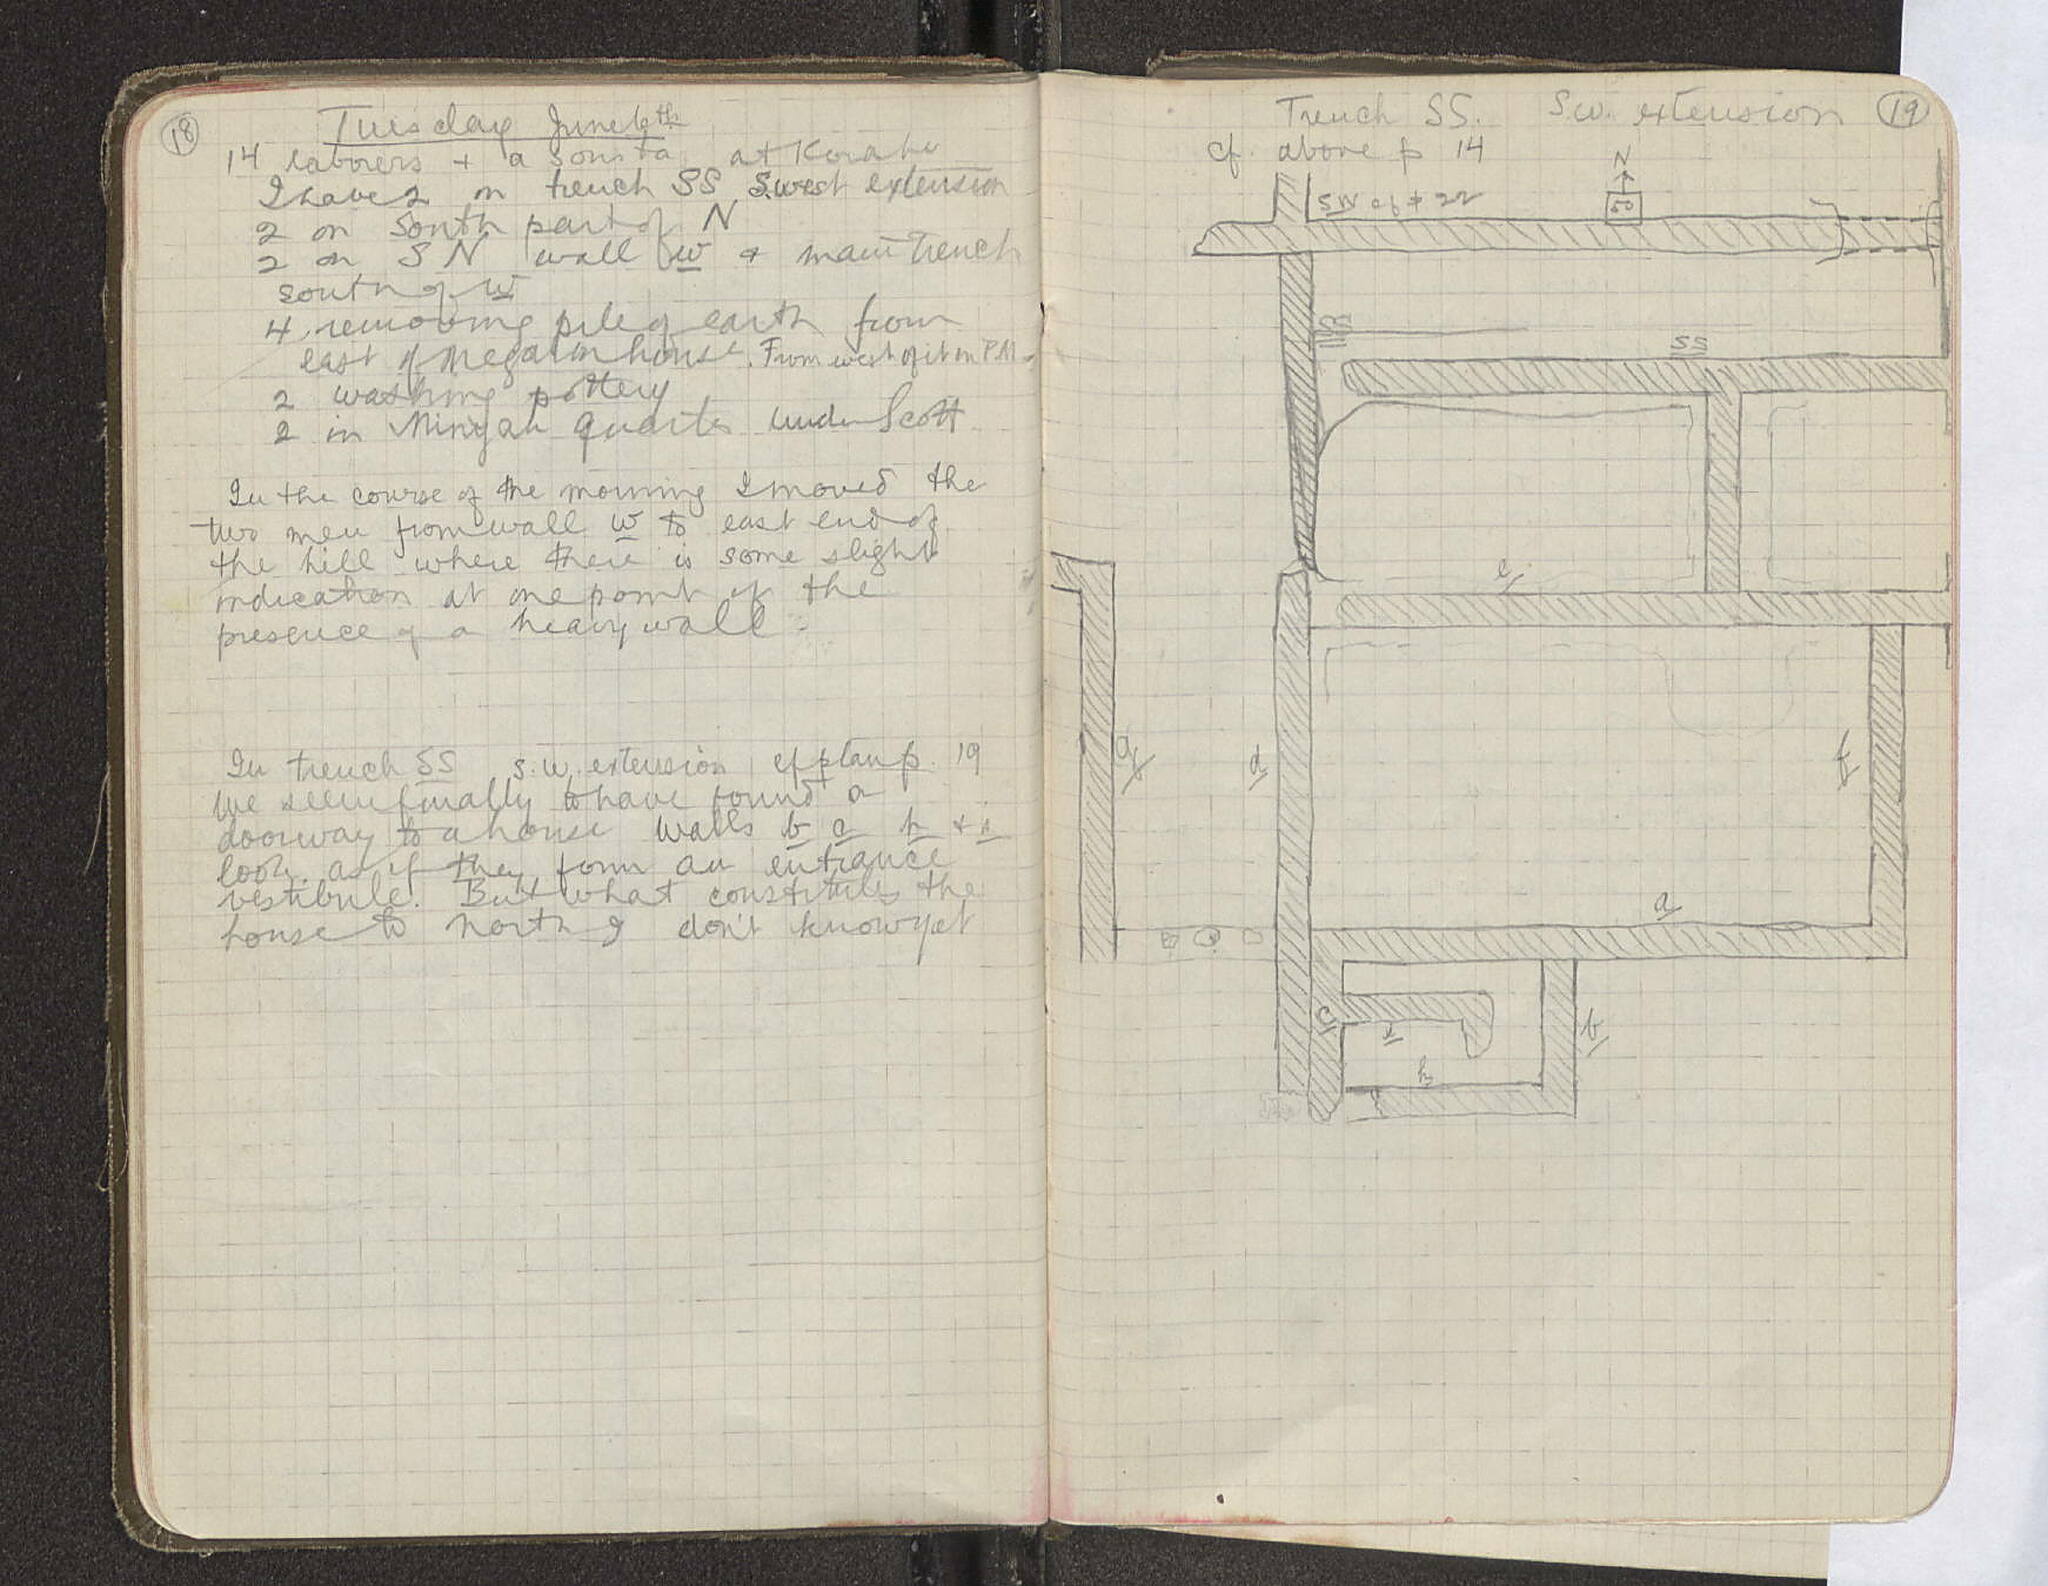 18
Tuesday June 6th
14 laborers + a sousta at Korakou
I have 2 on trench SS S.west extension
2 on South part of N
2 on S N wall w + main trench
south of w
4 removing pile of earth from
east of Megaron house. From west of it in P.M.
2 washing pottery
2 in Minyan quarter under Scott
In the course of the morning I moved the
two men from wall w to east end of
the hill where there is some slight
indication at one point of the
presence of a heavy wall.
In trench SS s.w. extension cf plan p. 19
we seem finally to have found a
doorway to a house walls b c h + x
look as if they form an entrance
vestibule. But what constitutes the
house to north I don't know yet
Trench SS. S.W. extension 19
cf. above p 14
N
SW cf p 22
50
SS
SS
e
g
d
f
a
c
x
b
h